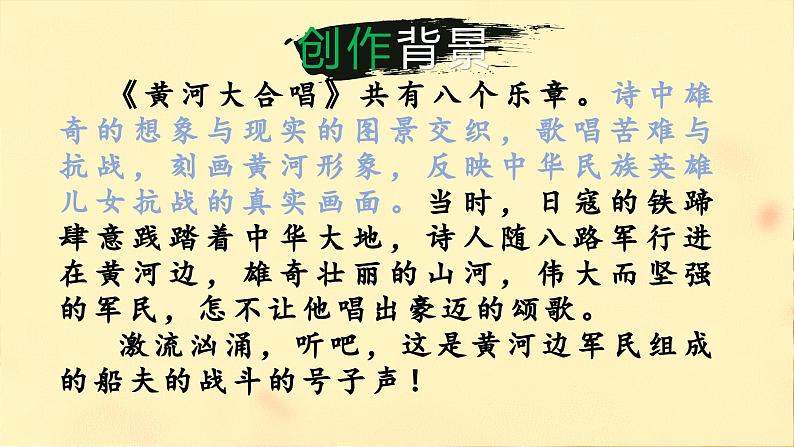 创作背景
《黄河大合唱》共有八个乐章。诗中雄
奇的想象与现实的图景交织，歌唱苦难与
抗战，刻画黄河形象，反映中华民族英雄
儿女抗战的真实画面。当时，日寇的铁蹄
肆意践踏着中华大地，诗人随八路军行进
在黄河边，雄奇壮丽的山河，伟大而坚强
的军民，怎不让他唱出豪迈的颂歌。
激流汹涌，听吧，这是黄河边军民组成
的船夫的战斗的号子声！